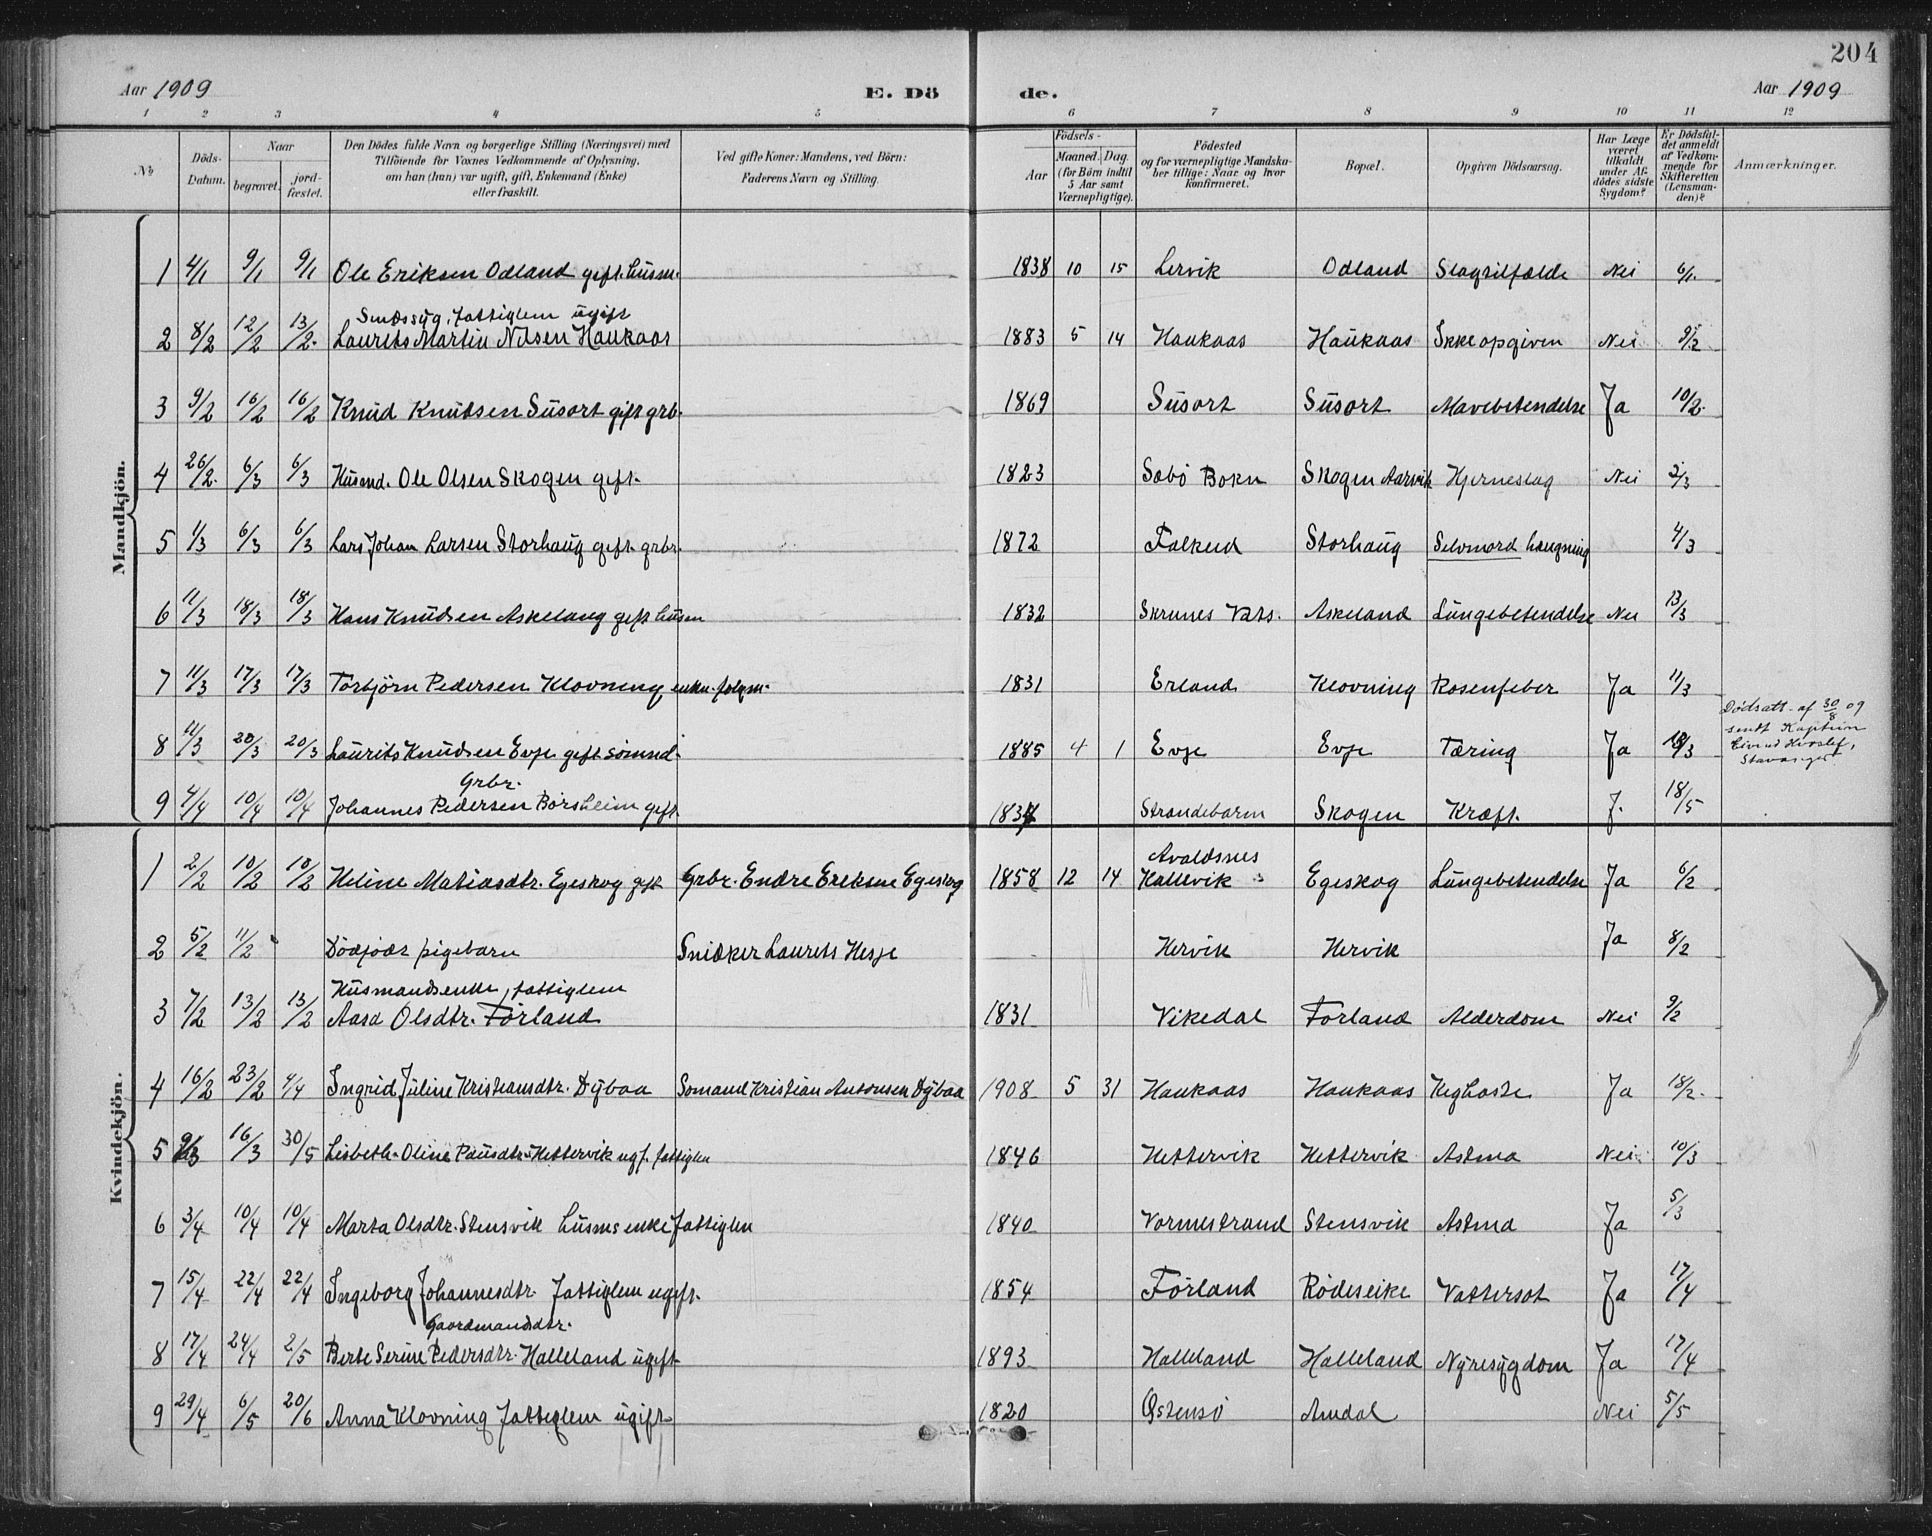 204
Aar 1909 E. Dö de. Aar 1909
1 2 3 4 5 6 7 8 9 10 11 12
No
Döds-Datum.
Naar
begravet.
jord-fæstet.
Den Dödes fulde Navn og borgerlige Stilling (Næringsvei) med
Tilföiende for Voxnes Vedkommende af Oplysning,
om han (hun) var ugift, gift, Enkemand (Enke)
eller fraskilt.
Ved gifte Koner: Mandens, ved Börn:
Faderens Navn og Stilling.
Födsels-
Aar
Maaned. Dag.
(for Börn indtil
5 Aar samt
Værnepligtige).
Födested
og for værnepligtige Mandska-
ber tillige: Naar og hvor
konfirmeret.
Bopæl.
Opgiven Dödsaarsag.
Har Læge
været
tilkaldt
under Af-
dödes sidste
Sygdom?
Er Dödsfal-
det anmeldt
af Vedkom-
mende for
Skifteretten
(Lensman-
den)?
Anmærkninger.
Mandkjön.
1 4/1 9/1 9/1 Ole Eriksen Odland gift husm. 1838 10 15 Lervik Odland Slagtilfælde Nei 6/1
Sindssyg, fattiglem ugift
2 8/2 12/2 13/2 Laurits Martin Nilsen Haukaas 1883 5 14 Haukaas Haukaas Ikke opgiven Nei 9/2
3 9/2 16/2 16/2 Knud Knudsen Susort gift grb. 1869 Susort Susort Mavebetendelse Ja 10/2
4 26/2 6/3 6/3 Husmd. Ole Olsen Skogen gift. 1823 Sæbö Bokn Skogen Aarvik Hjerneslag Nei 2/3
5 1/3 6/3 6/3 Lars Johan Larsen Storhaug gift grbr. 1872 Falkeid Storhaug Selvmord hængning 4/3
6 11/3 18/3 18/3 Hans Knudsen Askelang gift husm 1832 Skrunes Vats. Askeland Lungebetendelse Nei 13/3
7 11/3 17/3 17/3 Torbjörn Pedersen Klovning enkm. folgm. 1831 Erland Klovning Rosenfeber Ja 11/3
8 11/3 20/3 20/3 Laurits Knudsen Evje gift sömnd. 1885 4 1 Evje Evje Tæring Ja 18/3
Dödsatt. af 30/8 og
sendt Kaptein
Stavanger
Grbr.
9 4/4 10/4 10/4 Johannes Pedersen Börsheim gift. Strandebarm Skogen Kræft. J. 18/5
Kvindekjön.
Avaldsnes
1 2/2 10/2 10/2 Heline Matiasdtr. Egeskog gift Grbr. Endre Eriksen Egeskog 1858 12 14 Kallevik Egeskog Lungebetendelse Ja 6/2
2 5/2 11/2 Dödfödt pigebarn Snidker Laurits Hesje Hervik Hervik Ja 8/2
Husmandsenke, fattiglem
3 7/2 13/2 13/2 Aasa Olsdtr. Förland 1831 Vikedal Förland Alderdom Nei 9/2
4 16/2 23/2 4/4 Ingrid Juline Kristiansdtr. Dybaa Sömand Kristian Antonsen Dybaa 1908 5 31 Haukaas Haukaas Kighoste Ja 18/2
5 9/3 16/3 30/5 Lisbeth Oline Paulsdtr. Hettervik ugf. fattiglem 1846 Hettervik Hettervik Astma Nei 10/3
6 3/4 10/4 10/4 Marta Olsdtr. Stensvik husms enke fattiglem 1840 Vormestrand Stensvik Astma Ja 5/3
7 15/4 22/4 22/4 Ingeborg Johannesdtr. fattiglem ugift. 1854 Förland Rödseike Vattersot Ja 17/4
Gaardmandsdtr.
8 17/4 24/4 2/5 Berte Serine Pedersdtr. Halleland ugift 1893 Halleland Halleland Nyresygdom Ja 17/4
9 29/4 6/5 20/6 Anna Klovning fattiglem ugift 1820 Östensö Amdal Nei 5/5